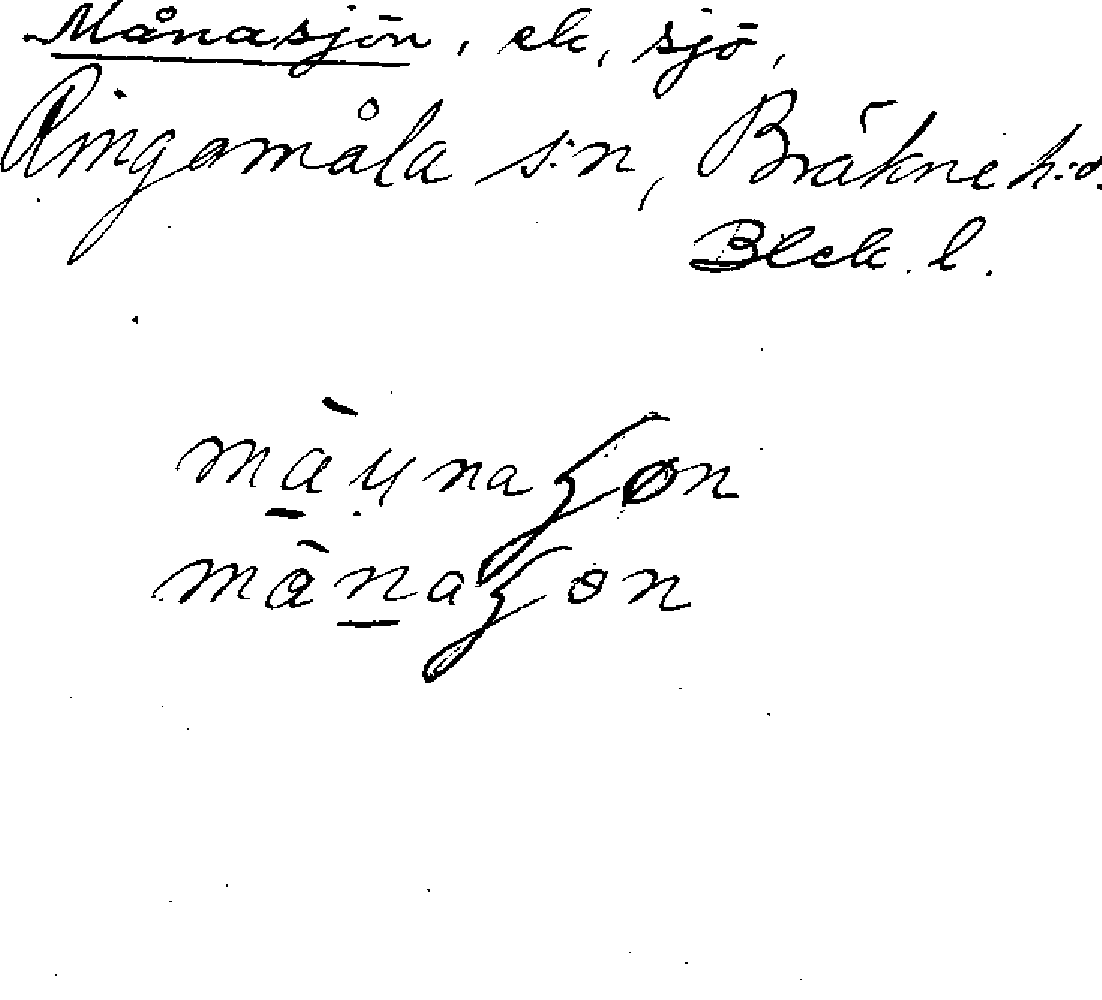 Månasjön, ek, sjö,
Ringamåla s:n, Bräkne h:d.
Blek. l.
màu̩naʒøn
mànaʒøn